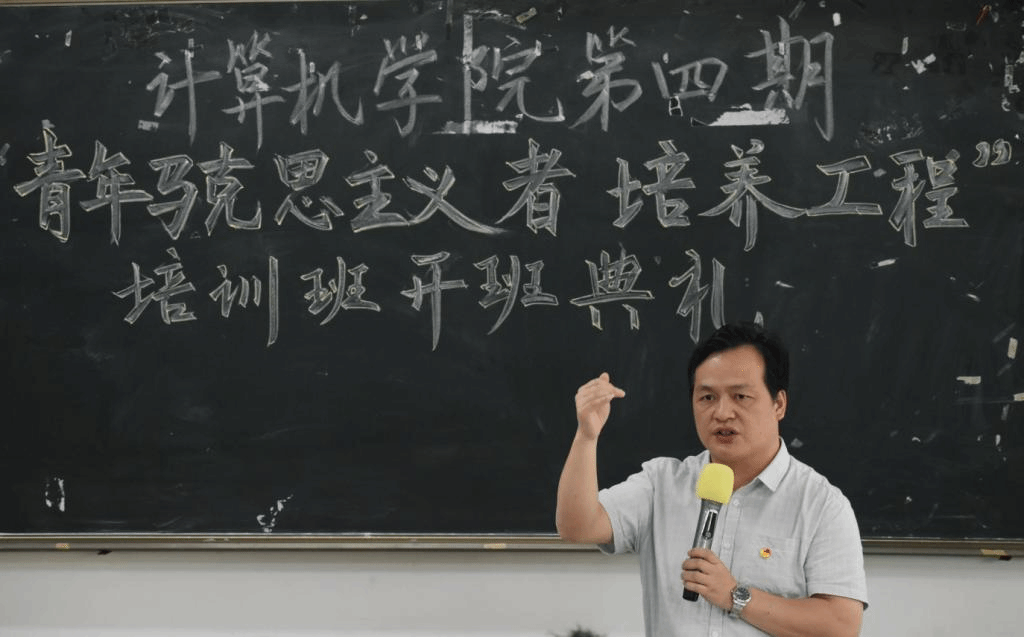 计算机学院第四期
青年马克思主义者培养工程”
培训班开班典礼